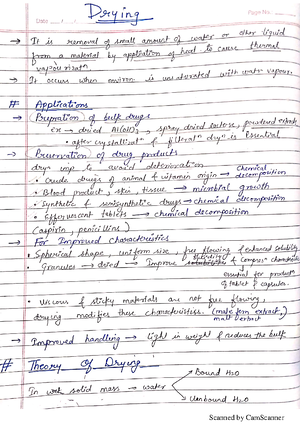 Date
Page No.
Drying
→ It is removal of small amount of water or other liquid
from a material by application of heat to cause thermal
vapourisatn
→ It occurs when environ is unsaturated with water vapours.
# Applications
→ Prepration of bulk drugs
ex → dried Al(OH)3, spray dried lactose, powdered extracts
• after crystallisatn & filteratn dryn is Essential
→ Preservation of drug products
dryn imp to avoid deterioration
• Crude drugs of animal & vitamin origin → chemical
decomposition
• Blood product, skin, tissue → microbial growth
• Synthetic & semisynthetic drugs → chemical decomposition
• Effervescent tablets → chemical decomposition
(aspirin, penicillins)
→ For Improved characteristics
• Spherical shape, uniform size, free flowing & enhanced solubility
• Granules → dried → Improve & compress characteristics
essential for productn
of tablet & capsules.
• Viscous & sticky materials are not free flowing,
drying modifies these characteristics. (male fern extract,
malt extract
→ Improved handling → light in weight & reduces the bulk
# Theory of Drying
In wet solid mass → water
Bound H2O
Unbound H2O
Scanned by CamScanner